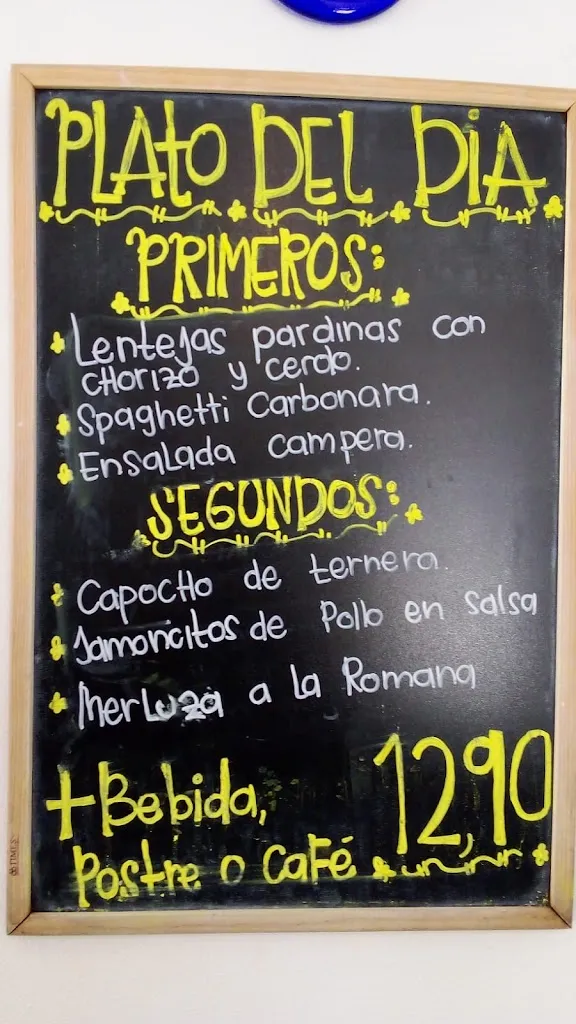 PLATO DEL DIA
PRIMEROS:
Lentejas pardinas con
CHORIZO y cerdo.
Spaghetti Carbonara.
Ensalada campera.
SEGUNDOS:
CapocHo de ternera.
Jamoncitos de Pollo en salsa
Merluza a la Romana
+Bebida, 12,90
Postre o café
TIMES